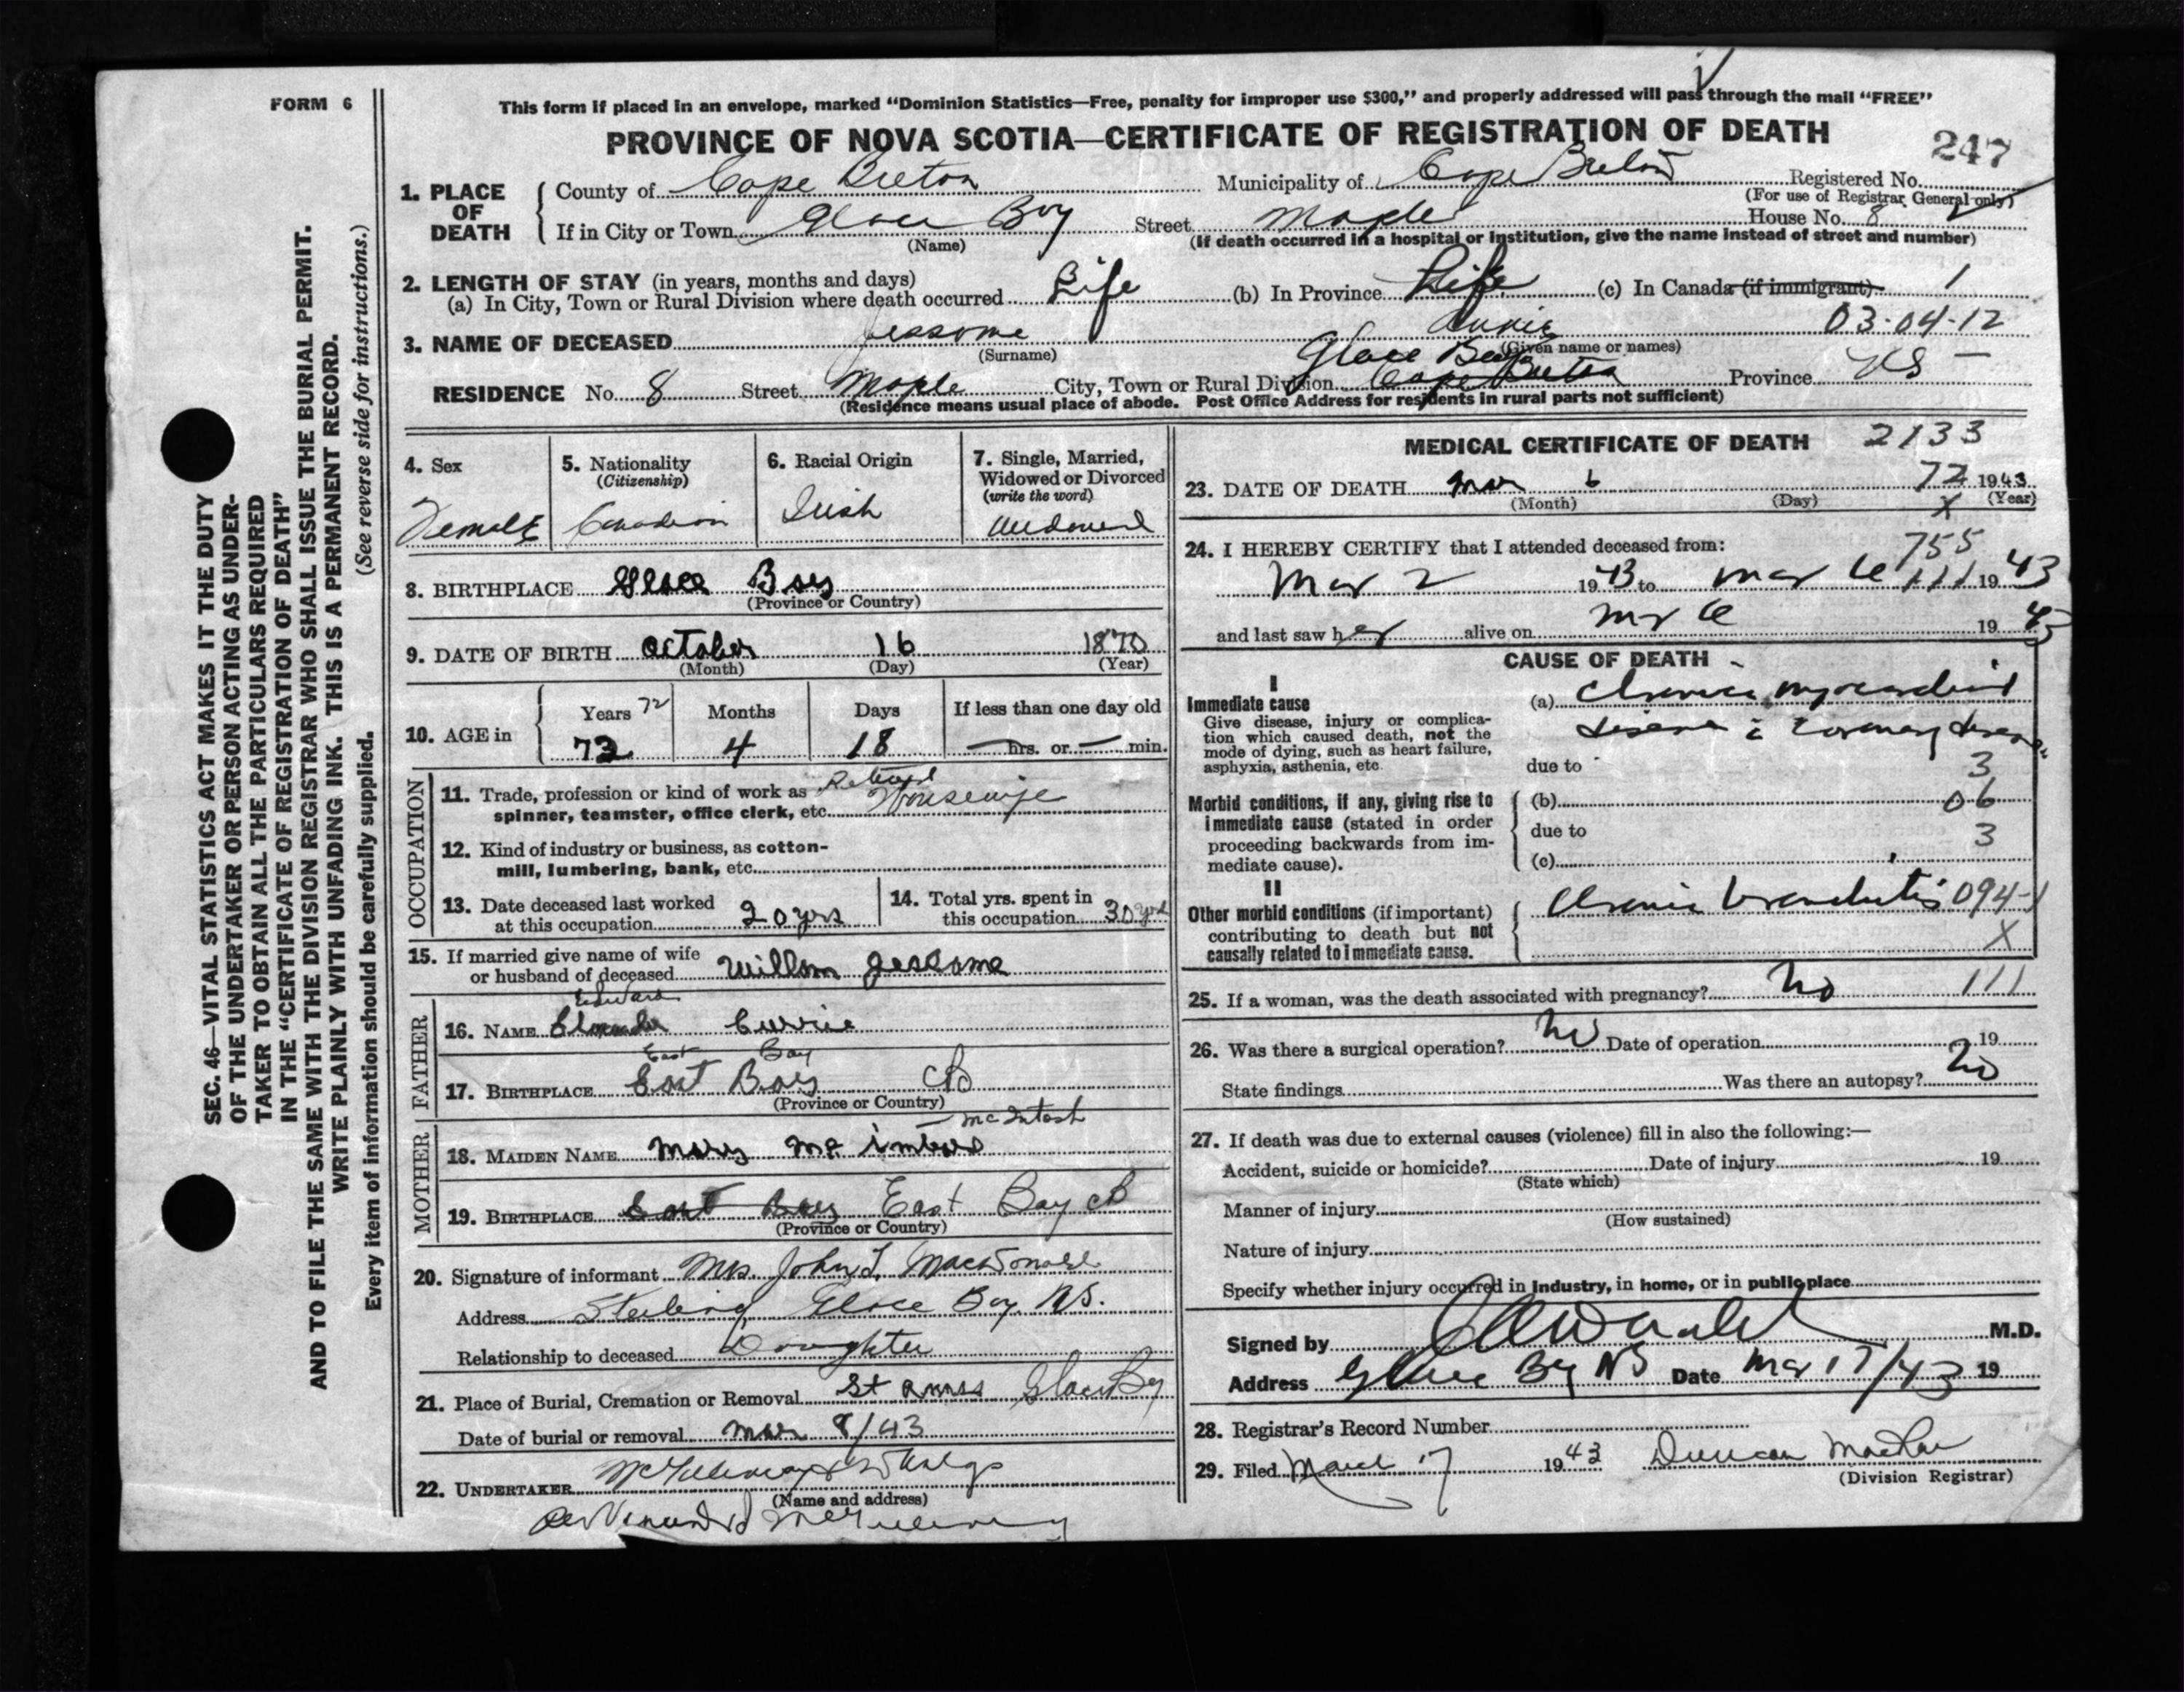 FORM 6
This form if placed in an envelope, marked “Dominion Statistics—Free, penalty for improper use $300,” and properly addressed will pass through the mail “FREE”
PROVINCE OF NOVA SCOTIA—CERTIFICATE OF REGISTRATION OF DEATH
247
1. PLACE OF DEATH
County of Cape Breton Municipality of Cape Breton Registered No.
(For use of Registrar General only)
If in City or Town Glace Bay Street Maple House No. 8
(Name) (If death occurred in a hospital or institution, give the name instead of street and number)
2. LENGTH OF STAY (in years, months and days)
(a) In City, Town or Rural Division where death occurred Life (b) In Province Life (c) In Canada (if immigrant) 1
3. NAME OF DECEASED Jessome Annie 03-04-12
(Surname) (Given name or names)
Glace Bay
RESIDENCE No. 8 Street Maple City, Town or Rural Division Cape Breton Province NS
(Residence means usual place of abode. Post Office Address for residents in rural parts not sufficient)
4. Sex Female
5. Nationality (Citizenship) Canadian
6. Racial Origin Irish
7. Single, Married, Widowed or Divorced (write the word) Widowed
8. BIRTHPLACE Glace Bay
(Province or Country)
9. DATE OF BIRTH October 16 1870
(Month) (Day) (Year)
10. AGE in Years 72 Months Days If less than one day old
73 4 18 — hrs. or — min.
OCCUPATION
11. Trade, profession or kind of work as Retired
spinner, teamster, office clerk, etc. Housewife
12. Kind of industry or business, as cotton-
mill, lumbering, bank, etc.
13. Date deceased last worked
at this occupation 20 yrs
14. Total yrs. spent in
this occupation 30 yrs
15. If married give name of wife
or husband of deceased William Jessome
FATHER
Edward
16. NAME Currie
East Bay
17. BIRTHPLACE East Bay CB
(Province or Country)
MOTHER
McIntosh
18. MAIDEN NAME Mary Mc
19. BIRTHPLACE East Bay East Bay CB
(Province or Country)
20. Signature of informant Mrs. John J. MacDonald
Address Sterling Glace Bay NS.
Relationship to deceased Daughter
21. Place of Burial, Cremation or Removal St Anns Glace Bay
Date of burial or removal Mar 8/43
22. UNDERTAKER
(Name and address)
MEDICAL CERTIFICATE OF DEATH 2133
72
23. DATE OF DEATH Mar 6 1943
(Month) (Day) (Year)
X
24. I HEREBY CERTIFY that I attended deceased from: 755
Mar 2 1943 to Mar 6 111 1943
and last saw her alive on Mar 6 1943
CAUSE OF DEATH
I
Immediate cause
Give disease, injury or complica-
tion which caused death, not the
mode of dying, such as heart failure,
asphyxia, asthenia, etc.
(a) Chronic myocardial
disease c coronary disease
due to 3
Morbid conditions, if any, giving rise to
immediate cause (stated in order
proceeding backwards from im-
mediate cause).
(b) 06
due to 3
(c)
II
Other morbid conditions (if important)
contributing to death but not
causally related to immediate cause.
Chronic bronchitis 094-1
X
25. If a woman, was the death associated with pregnancy? No 111
26. Was there a surgical operation? No Date of operation 19
State findings Was there an autopsy? No
27. If death was due to external causes (violence) fill in also the following:—
Accident, suicide or homicide? Date of injury 19
(State which)
Manner of injury
(How sustained)
Nature of injury
Specify whether injury occurred in industry, in home, or in public place
Signed by M.D.
Address Glace Bay NS Date Mar 17/43 19
28. Registrar's Record Number
29. Filed March 17 1943 Duncan MacRae
(Division Registrar)
SEC. 46—VITAL STATISTICS ACT MAKES IT THE DUTY
OF THE UNDERTAKER OR PERSON ACTING AS UNDER-
TAKER TO OBTAIN ALL THE PARTICULARS REQUIRED
IN THE “CERTIFICATE OF REGISTRATION OF DEATH”
AND TO FILE THE SAME WITH THE DIVISION REGISTRAR WHO SHALL ISSUE THE BURIAL PERMIT.
WRITE PLAINLY WITH UNFADING INK. THIS IS A PERMANENT RECORD.
Every item of information should be carefully supplied. (See reverse side for instructions.)